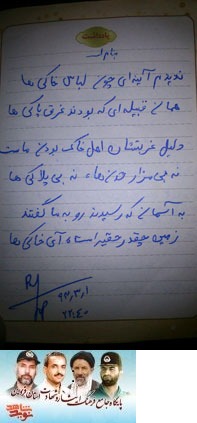 یادداشت
بنام او
ندیدم آینه‌ای چون لباس خاکی‌ها
همان قبیله‌ای که بودند غرق پاکی‌ها
دلیل غربتشان اهل خاک بودن ماست
نه بی مزار خودن‌ها، نه بی پلاکی‌ها
به آسمان که رسیدند رو به ما گفتند
زمین چقدر حقیر است آی خاکی‌ها
۹۳,۳,۱
۲۲:۴۰
پایگاه جامع فرهنگ ایثار و شهادت استان قزوین
نوید شاهد